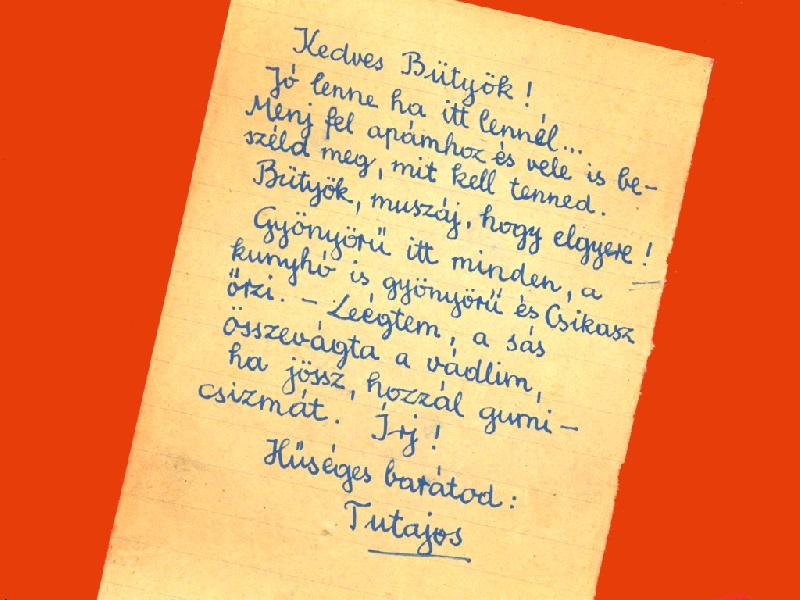 Kedves Bütyök!
Jó lenne ha itt lennél...
Menj fel apámhoz és vele is be-
széld meg, mit kell tenned.
Bütyök, muszáj, hogy elgyere!
Gyönyörű itt minden, a
kunyhó is gyönyörű és Csikasz
őrzi. – Leégtem, a sás
összevágta a vádlim,
ha jössz, hozzál gumi-
csizmát. Írj!
Hűséges barátod:
Tutajos